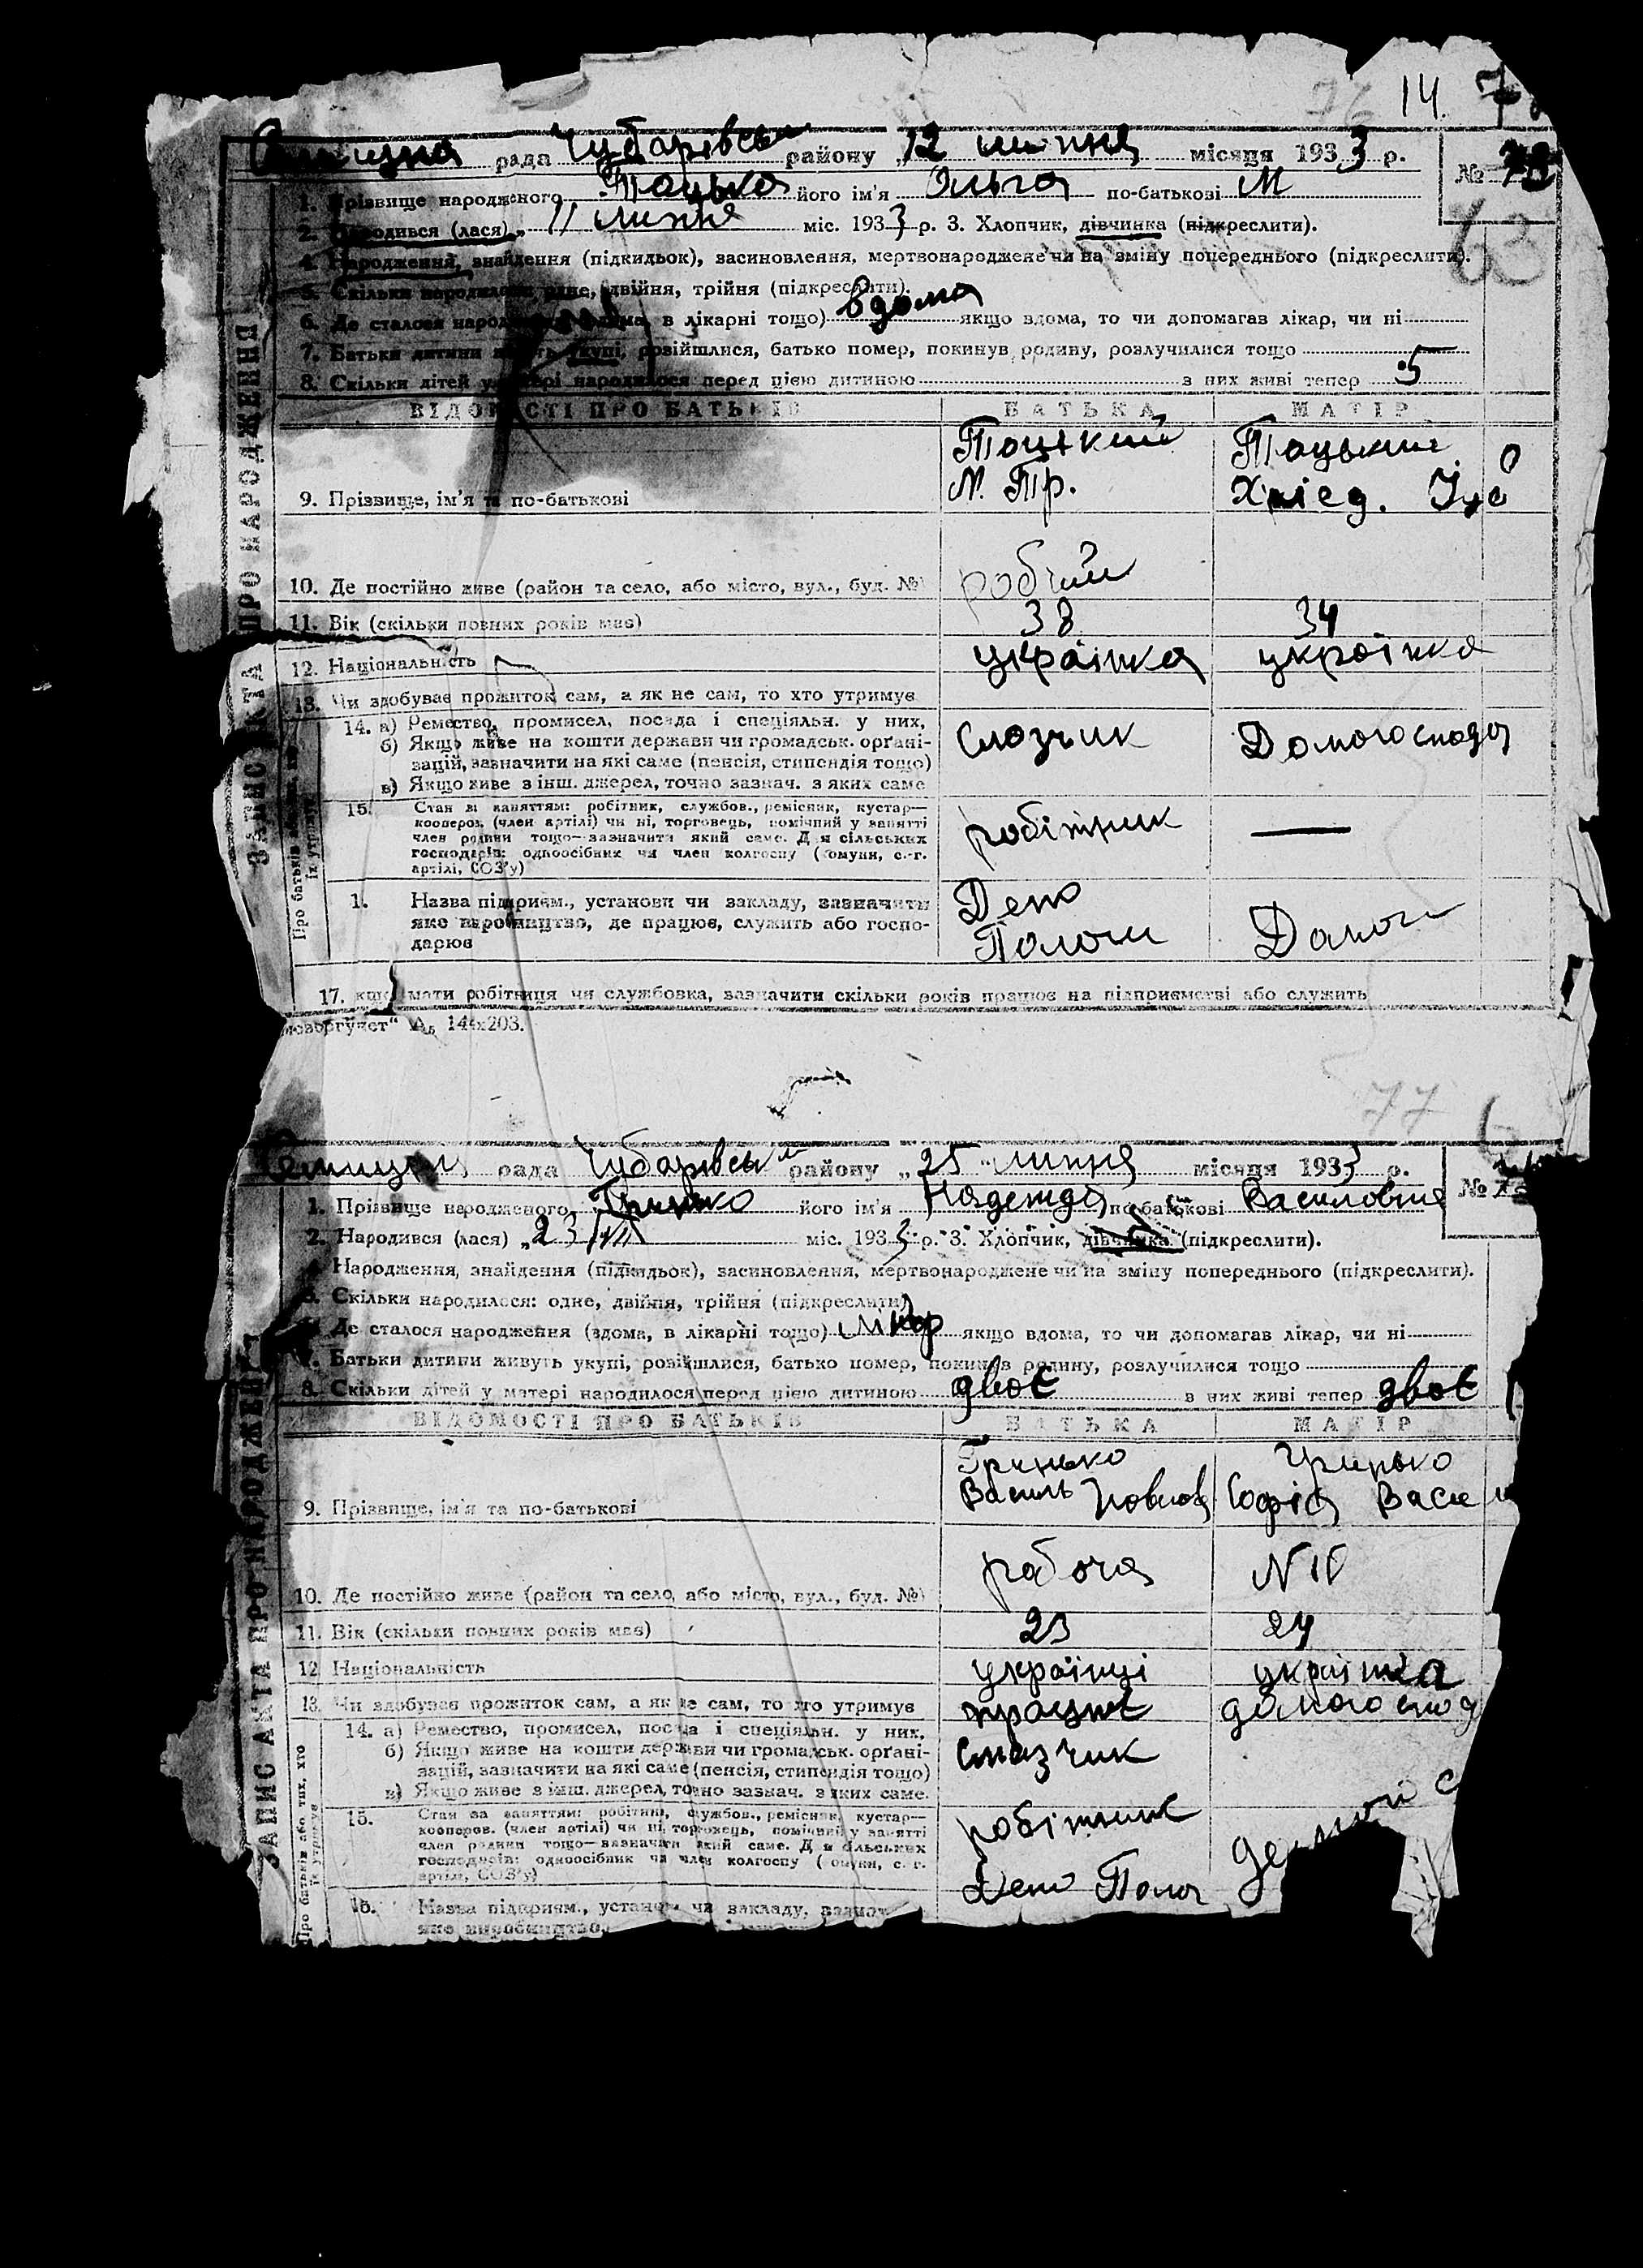 76 14.
рада Чубарівськ району „12 липня місяця 1933 р.
№ 78
63
1. Прізвище народженого Тоцька його ім'я Ольга по-батькові М
2. Народився (лася) „ 11 липня міс. 1933 р. 3. Хлопчик, дівчинка (підкреслити).
4. Народження, знайдення (підкидьок), засиновлення, мертвонароджене чи на зміну попереднього (підкреслити).
5. Скільки народилося: одне, двійня, трійня (підкреслити).
6. Де сталося народження (вдома, в лікарні тощо) вдома якщо вдома, то чи допомагав лікар, чи ні
7. Батьки дитини живуть укупі, розійшлися, батько помер, покинув родину, розлучилися тощо
8. Скільки дітей у матері народилося перед цією дитиною з них живі тепер 5
ВІДОМОСТІ ПРО БАТЬКІВ БАТЬКА МАТІР
Тоцький Тоцький
М. Тр.
9. Прізвище, ім'я та по-батькові
10. Де постійно живе (район та село, або місто, вул., буд. №)
11. Вік (скільки повних років має) 38 34
12. Національність українка українка
13. Чи здобуває прожиток сам, а як не сам, то хто утримує
14. а) Ремество, промисел, посада і спеціяльн. у них,
б) Якщо живе на кошти держави чи громадськ. орґані-
зацій, зазначити на які саме (пенсія, стипендія тощо)
в) Якщо живе з інш. джерел, точно зазнач. з яких саме
Домогоспода
15. Стан за заняттям: робітник, службов., ремісник, кустар—
коопероз. (член артілі) чи ні, торговець, помічний у занятті
член родини тощо—зазначити який саме. Для сільських
господарів: одноосібник чи член колгоспу (комуни, с.-г.
артілі, СОЗ'у)
робітник —
1. Назва підприєм., установи чи закладу, зазначити
яке виробництво, де працює, служить або госпо-
дарює
Депо
Пологи
17. кщо мати робітниця чи службовка, зазначити скільки років працює на підприємстві або служить
144х203.
ЗАПИС АКТА ПРО НАРОДЖЕННЯ
Про батьків або тих, хто їх утримує
77
рада Чубарівськ району „25 липня місяця 1933 р.
№
1. Прізвище народженого Гринько його ім'я Надежда по-батькові Василовна
2. Народився (лася) „23/VII міс. 1933 р. 3. Хлопчик, дівчинка (підкреслити).
Народження, знайдення (підкидьок), засиновлення, мертвонароджене чи на зміну попереднього (підкреслити).
5. Скільки народилося: одне, двійня, трійня (підкреслити)
Де сталося народження (вдома, в лікарні тощо) якщо вдома, то чи допомагав лікар, чи ні
7. Батьки дитини живуть укупі, розійшлися, батько помер, покинув родину, розлучилися тощо
8. Скільки дітей у матері народилося перед цією дитиною двоє з них живі тепер двоє
ВІДОМОСТІ ПРО БАТЬКІВ БАТЬКА МАТІР
Гринько Гринько
Василь Софія Васи
9. Прізвище, ім'я та по-батькові
робоча
10. Де постійно живе (район та село, або місто, вул., буд. №)
11. Вік (скільки повних років має) 23 24
12. Національність українці українка
13. Чи здобуває прожиток сам, а як не сам, то хто утримує працює домогоспод
14. а) Ремество, промисел, посада і спеціяльн. у них,
б) Якщо живе на кошти держави чи громадськ. орґані-
зацій, зазначити на які саме (пенсія, стипендія тощо)
в) Якщо живе з інш. джерел, точно зазнач. з яких саме.
смазчик
15. Стан за заняттям: робітник, службов., ремісник, кустар—
коопероз. (член артілі) чи ні, торговець, помічний у занятті
член родини тощо—зазначити який саме. Для сільських
господарів: одноосібник чи член колгоспу (комуни, с.-г.
артілі, СОЗ'у)
робітник
16. Назва підприєм., установи чи закладу, зазнач
яке виробництво,
Депо Полог
ЗАПИС АКТА ПРО НАРОДЖЕННЯ
Про батьків або тих, хто їх утримує